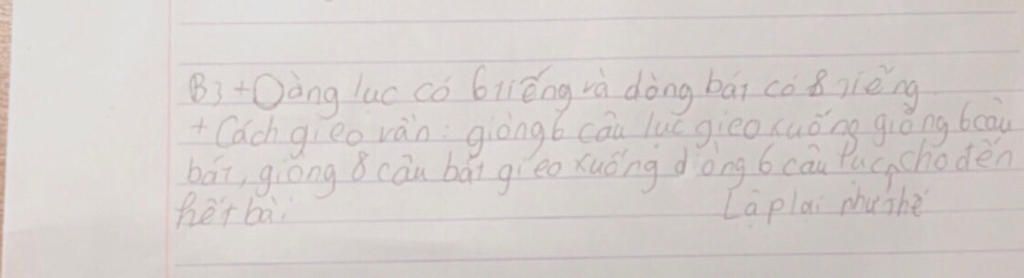 B3 + Dòng lục có 6 tiếng và dòng bát có 8 tiếng
+ Cách gieo vần: giòng 6 câu lục gieo xuống giòng 6 câu
bát, giòng 8 câu bát gieo xuống dòng 6 câu lục, cho đến
hết bài. Lặp lại như thế